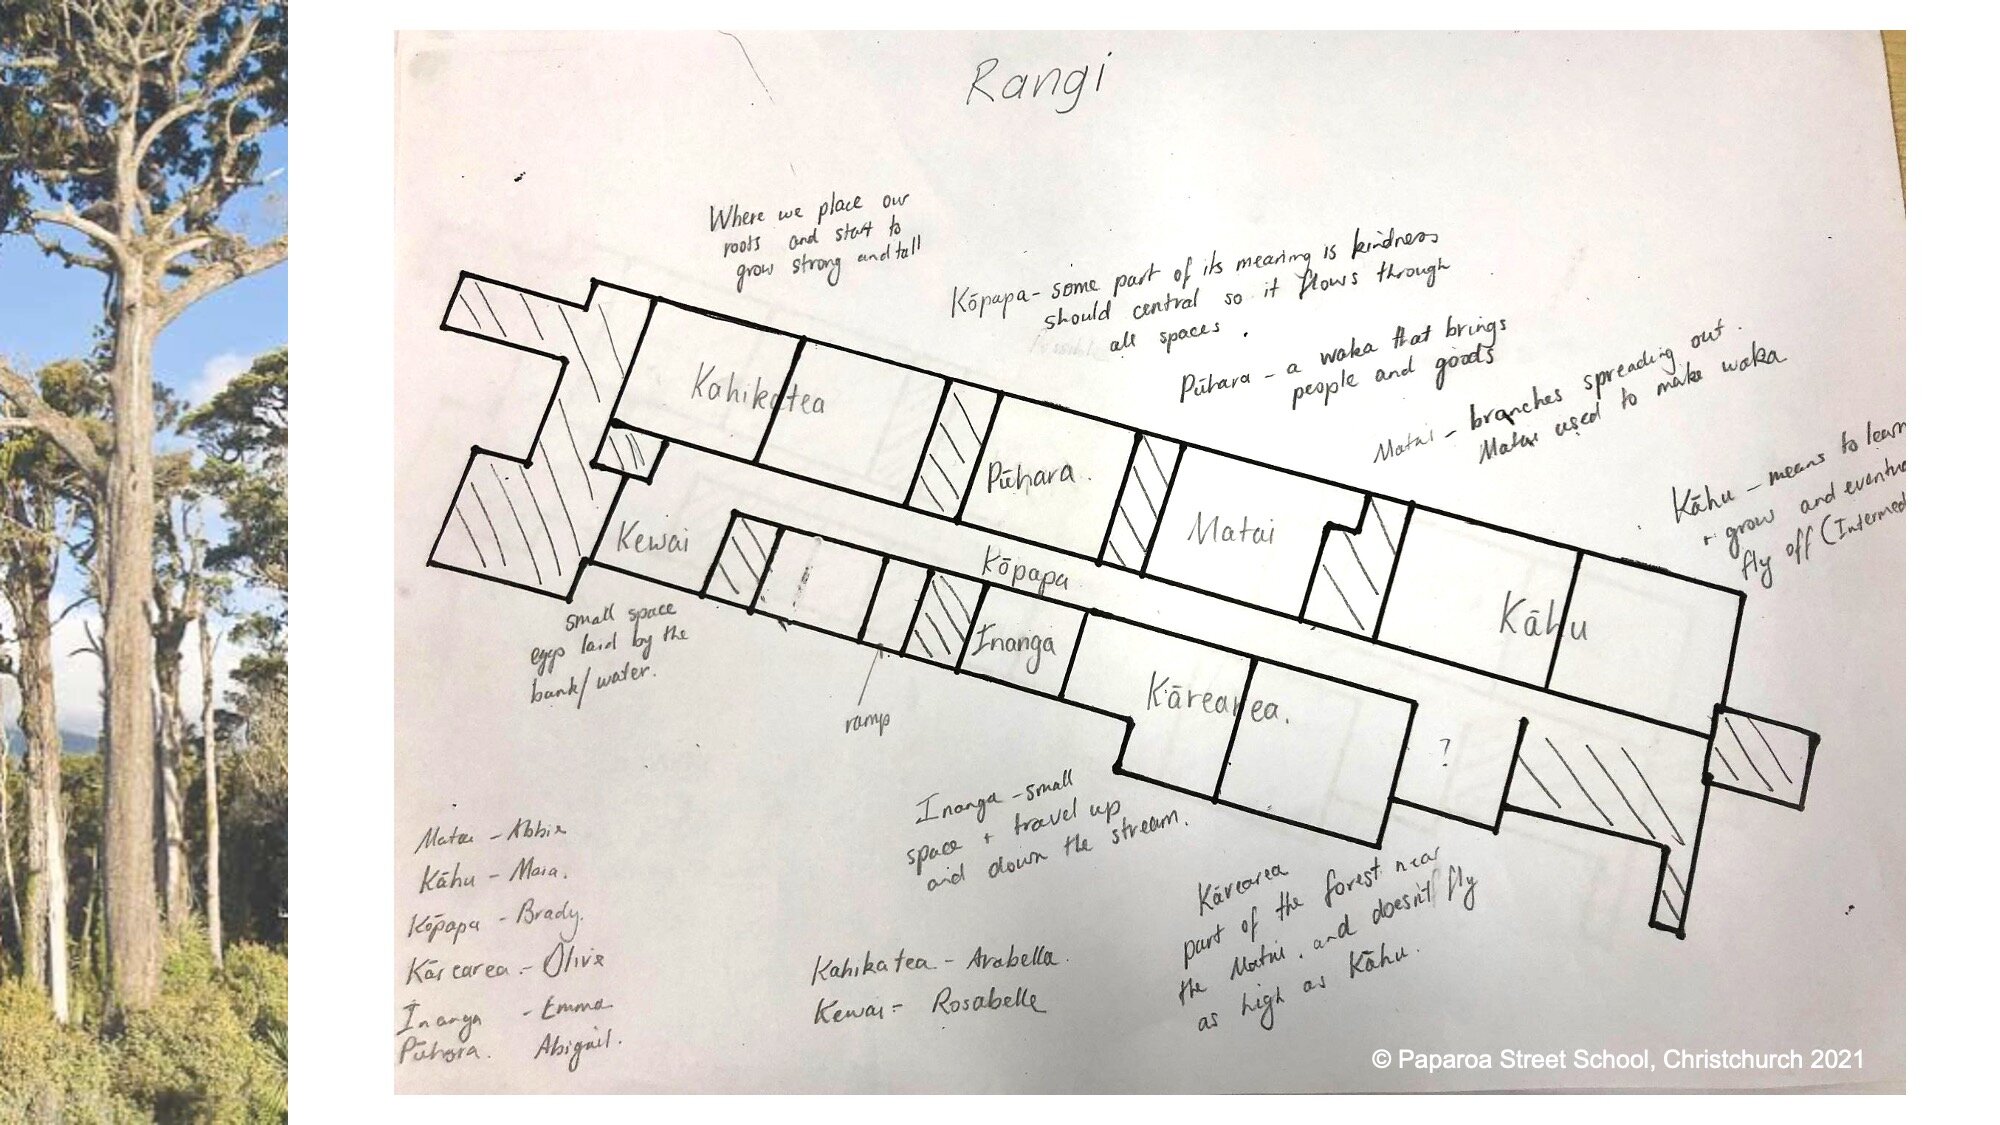 Rangi
Where we place our
roots and start to
grow strong and tall
Kōpapa - some part of its meaning is kindness
should central so it flows through
all spaces.
Pūhara - a waka that brings
people and goods
Matai - branches spreading out.
Matai used to make waka
Kāhu - means to learn
+ grow and eventua
fly off (Intermed
Kahikatea
Pūhara.
Matai
Kāhu
Kewai
Kōpapa
Inanga
Kārearea.
?
small space
eggs laid by the
bank/water.
ramp
Inanga - small
space + travel up
and down the stream.
Kārearea
part of the forest near
the Matai. and doesn't fly
as high as Kāhu.
Matai - Abbie
Kāhu - Maia.
Kōpapa - Brady.
Kārearea - Olive
Inanga - Emma
Pūhara. Abigail.
Kahikatea - Arabella.
Kewai - Rosabelle
© Paparoa Street School, Christchurch 2021